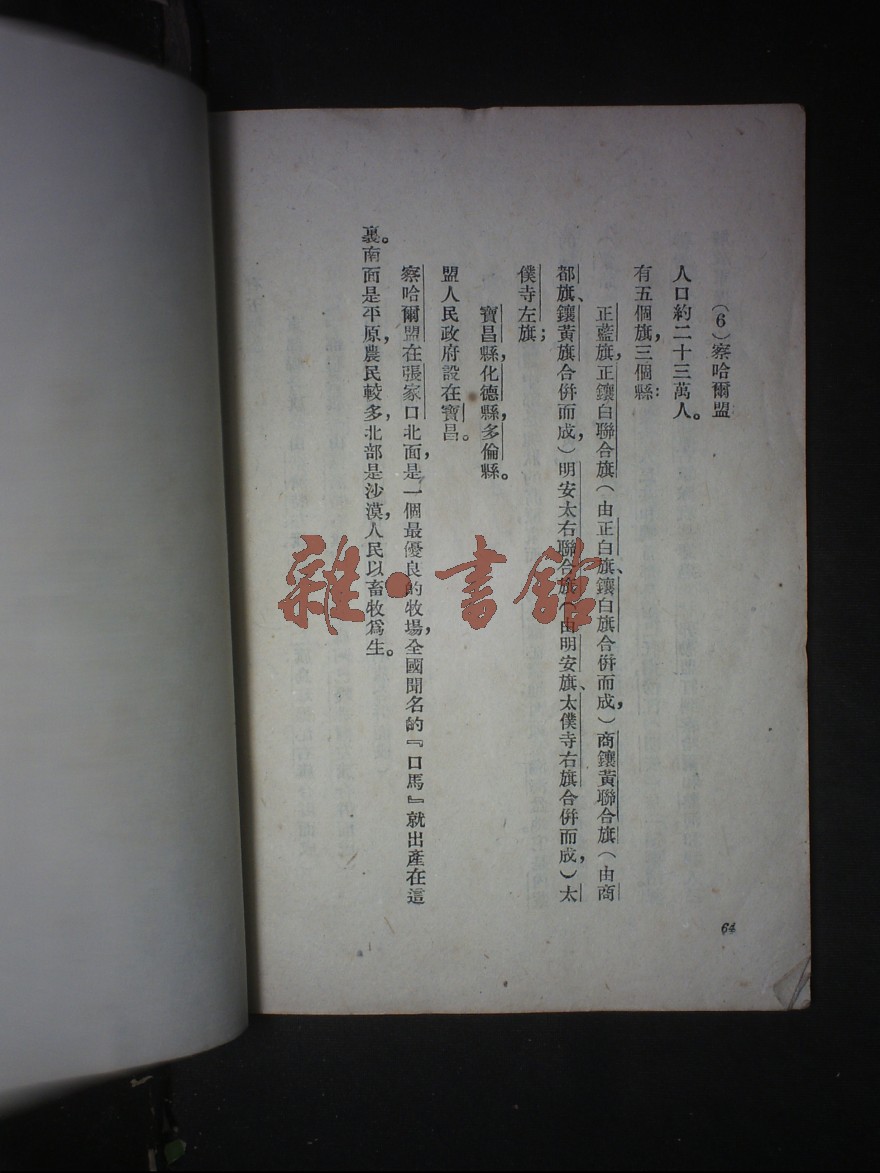 (6)察哈爾盟
人口約二十三萬人。
有五個旗,三個縣:
正藍旗,正鑲白聯合旗(由正白旗、鑲白旗合併而成,)商鑲黃聯合旗(由商
都旗、鑲黃旗合併而成,)明安太右聯合旗(由明安旗、太僕寺右旗合併而成,)太
僕寺左旗;
寶昌縣,化德縣,多倫縣。
盟人民政府設在寶昌。
察哈爾盟在張家口北面,是一個最優良的牧場,全國聞名的『口馬』就出產在這
裏。南面是平原,農民較多,北部是沙漠,人民以畜牧爲生。
64
雜·書館